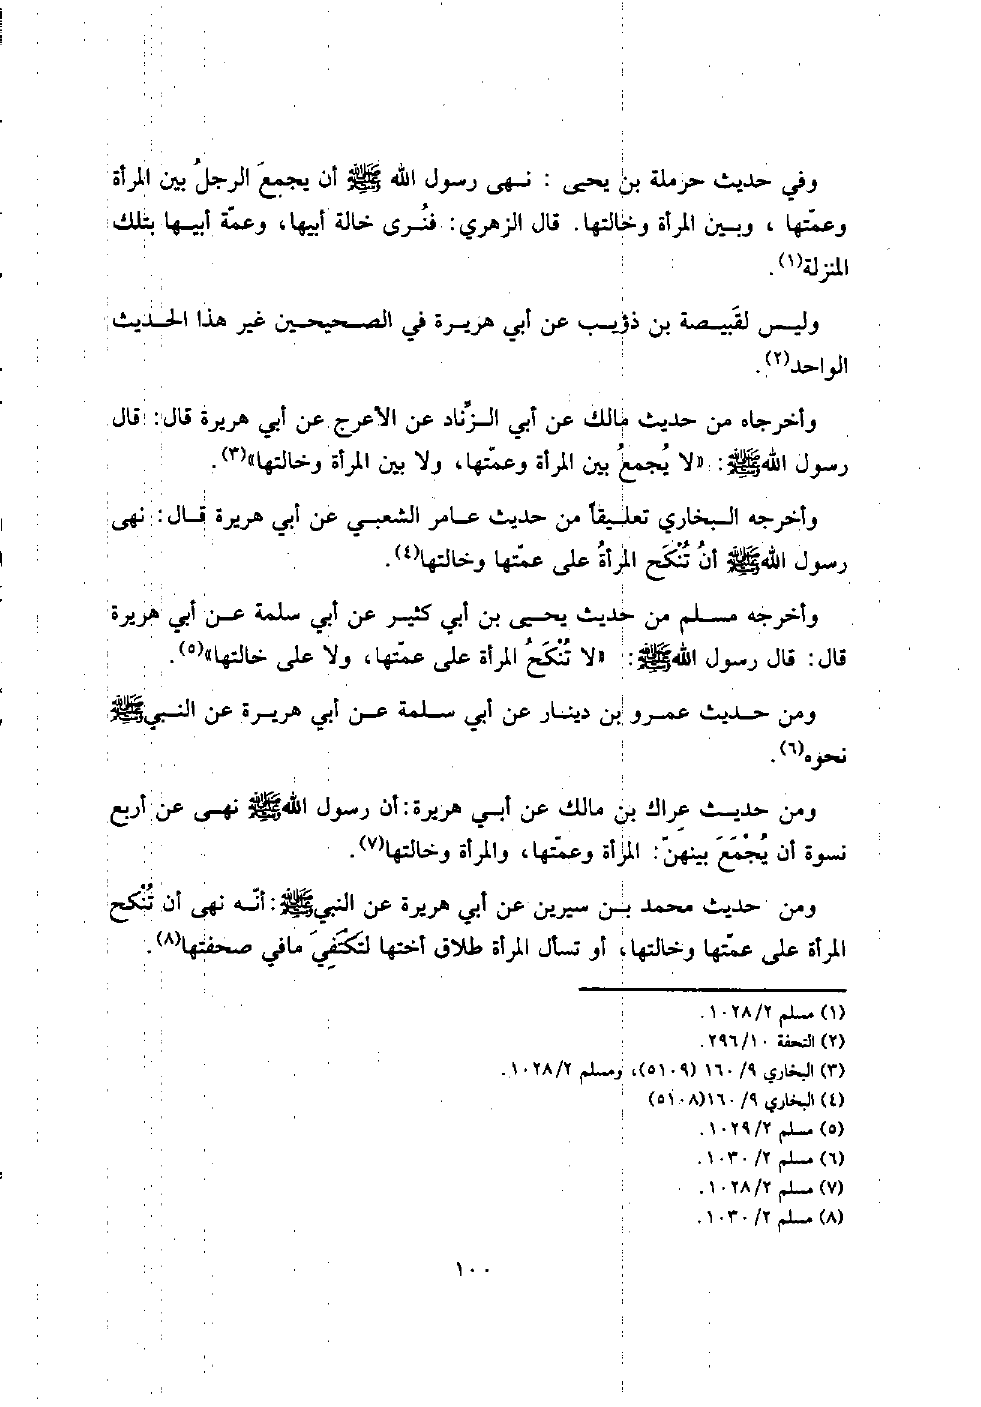 وفي حديث حرملة بن يحيى : نهى رسول الله ﷺ أن يجمعَ الرجلُ بين المرأة
وعمّتها ، وبين المرأة وخالتها. قال الزهري: فنُرى خالة أبيها، وعمّة أبيها بتلك
المنزلة(١).
وليس لقَبيصة بن ذؤيب عن أبي هريرة في الصحيحين غير هذا الحديث
الواحد(٢).
وأخرجاه من حديث مالك عن أبي الزِّناد عن الأعرج عن أبي هريرة قال: قال
رسول اللهﷺ: «لا يُجمعُ بين المرأة وعمّتها، ولا بين المرأة وخالتها»(٣).
وأخرجه البخاري تعليقاً من حديث عامر الشعبي عن أبي هريرة قال: نهى
رسول اللهﷺ أنْ تُنْكَح المرأةُ على عمّتها وخالتها(٤).
وأخرجه مسلم من حديث يحيى بن أبي كثير عن أبي سلمة عن أبي هريرة
قال: قال رسول اللهﷺ: «لا تُنْكَحُ المرأة على عمّتها، ولا على خالتها»(٥).
ومن حديث عمرو بن دينار عن أبي سلمة عن أبي هريرة عن النبيﷺ
نحوه(٦).
ومن حديث عِراك بن مالك عن أبي هريرة: أن رسول اللهﷺ نهى عن أربع
نسوة أن يُجْمَعَ بينهنّ: المرأة وعمّتها، والمرأة وخالتها(٧).
ومن حديث محمد بن سيرين عن أبي هريرة عن النبيﷺ: أنّه نهى أن تُنْكح
المرأة على عمّتها وخالتها، أو تسأل المرأة طلاق أختها لتَكْتَفِيَ مافي صحفتها(٨).
(١) مسلم ١٠٢٨/٢.
(٢) التحفة ٢٩٦/١٠.
(٣) البخاري ٩/ ١٦٠ (٥١٠٩)، ومسلم ١٠٢٨/٢.
(٤) البخاري ٩/ ١٦٠(٥١٠٨)
(٥) مسلم ١٠٢٩/٢.
(٦) مسلم ٢/ ١٠٣٠.
(٧) مسلم ١٠٢٨/٢.
(٨) مسلم ٢/ ١٠٣٠.
١٠٠